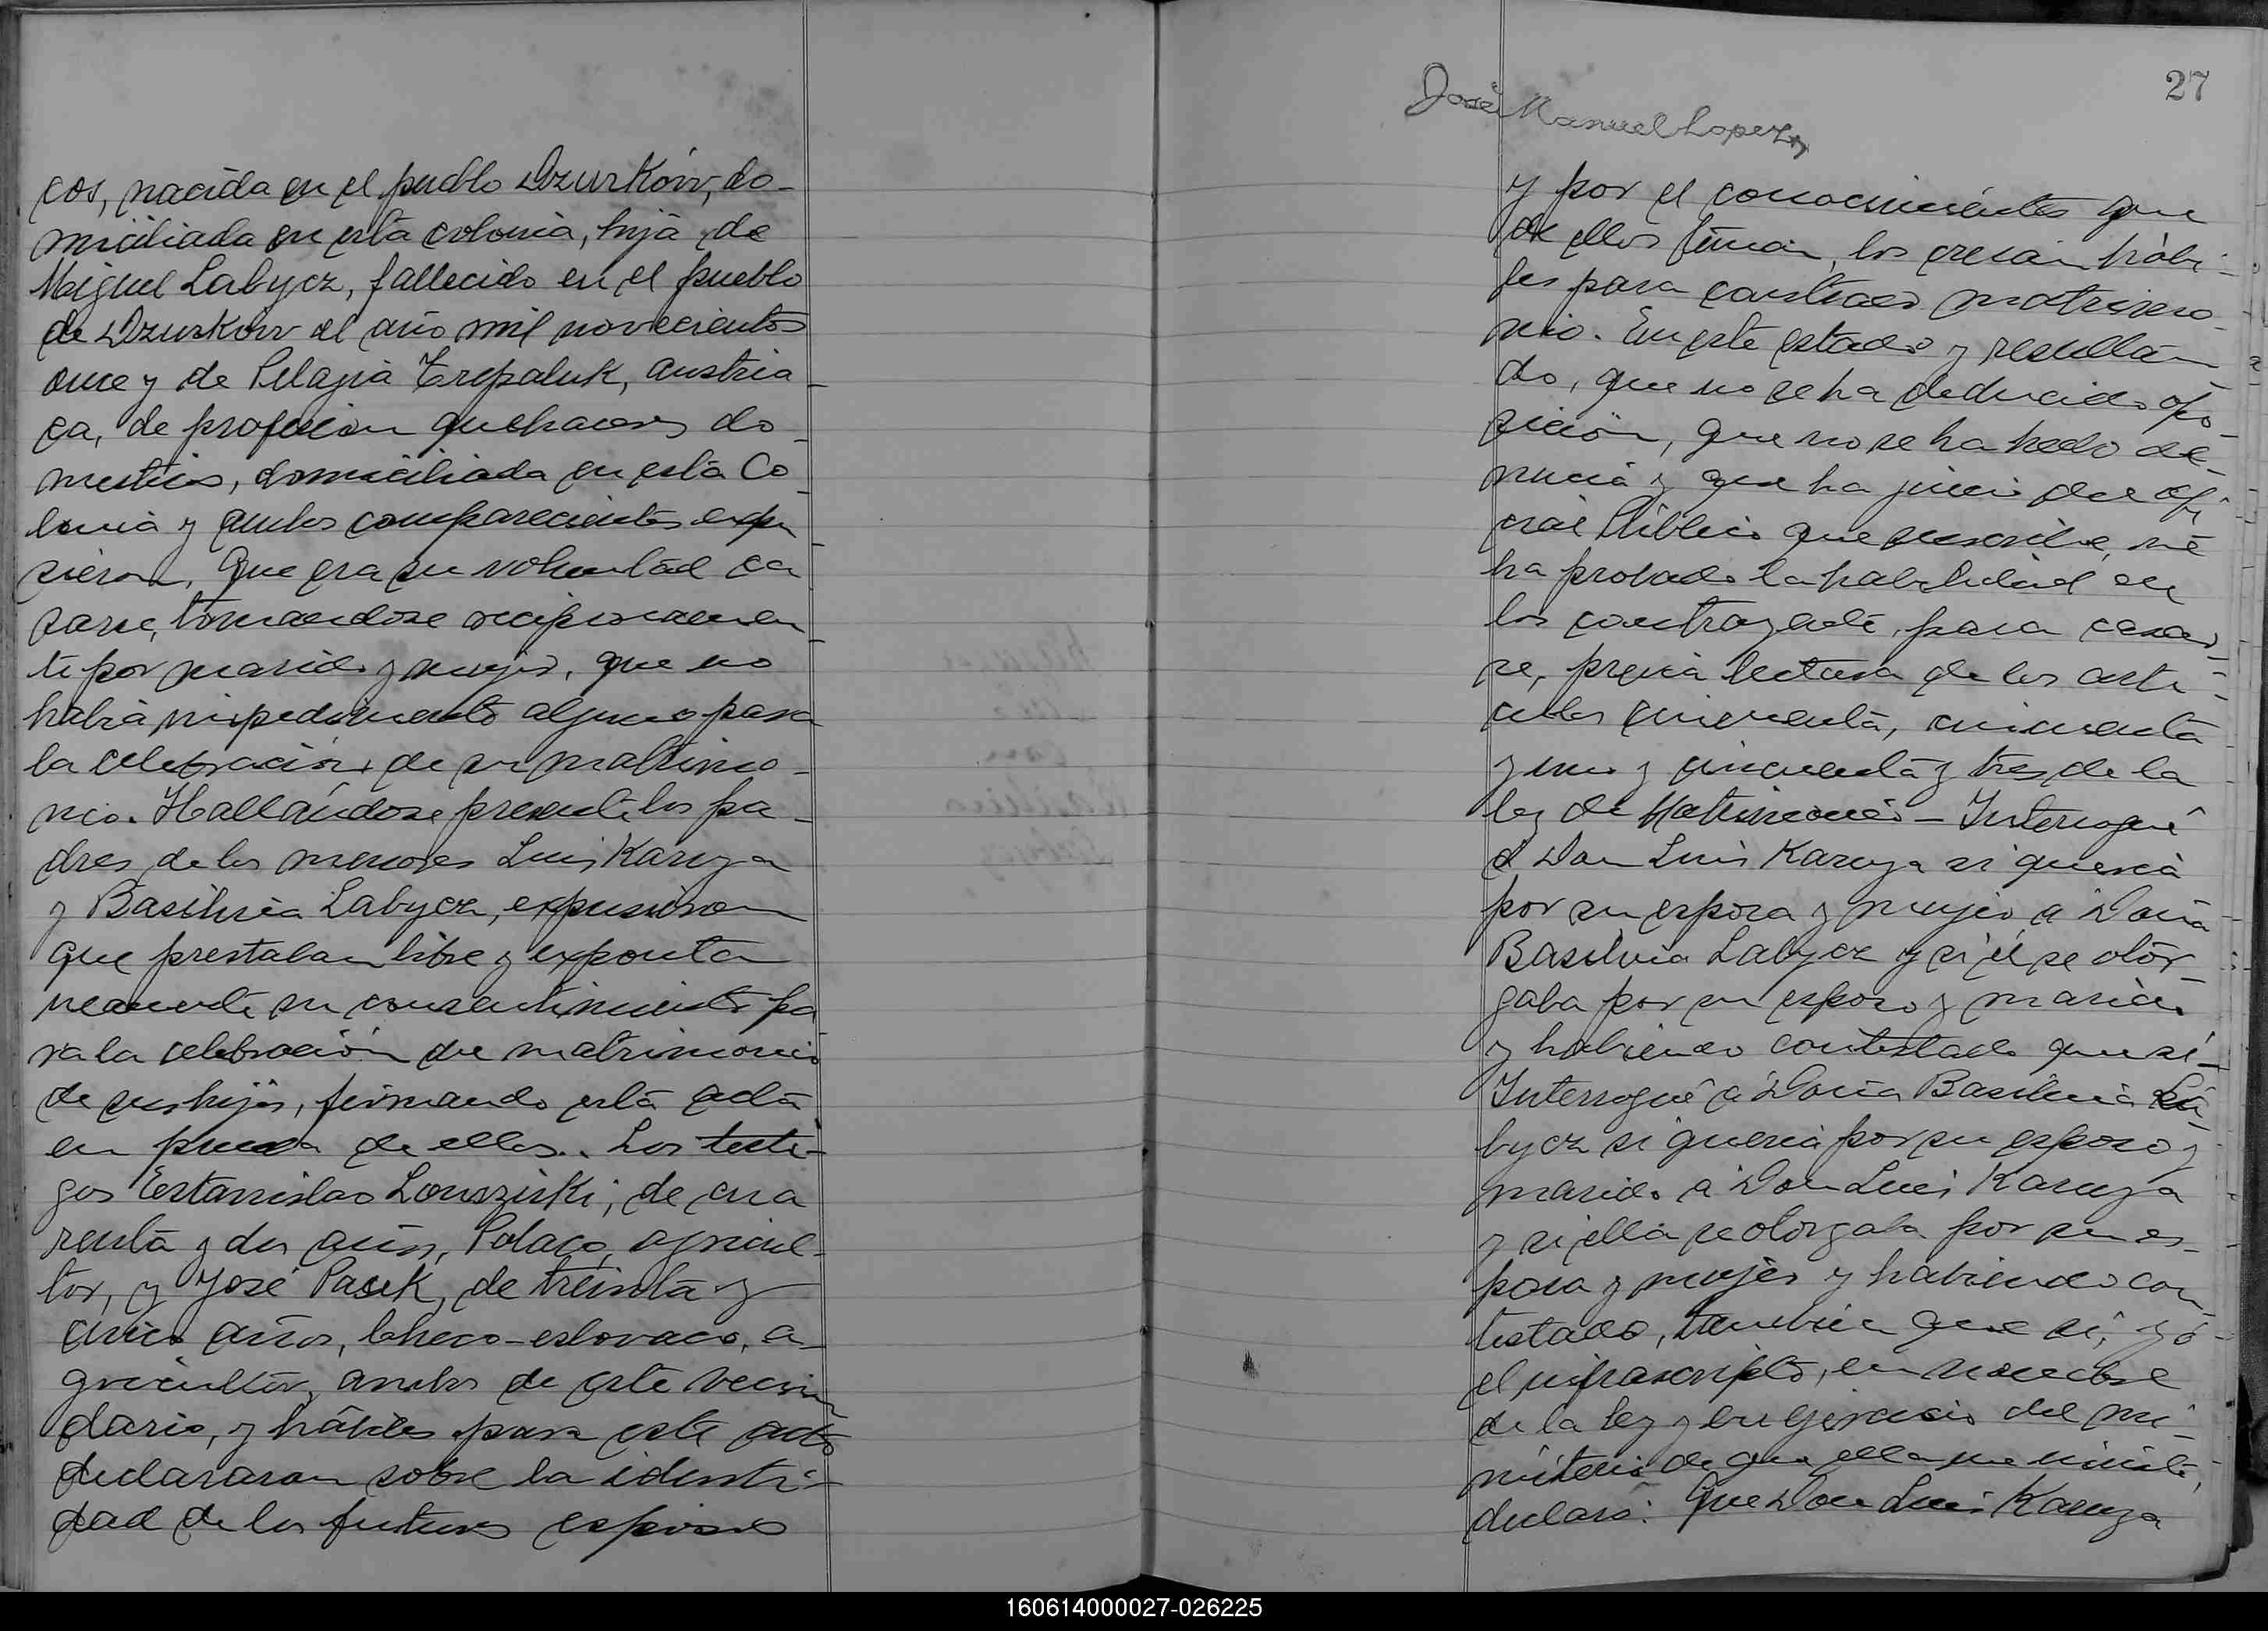 cos, nacida en el pueblo Dzurków, do-
miciliada en esta colonia, hija de
Miguel Labycz, fallecido en el pueblo
de Dzurkow el año mil novecientos
once y de Pelagia Trepaluk, austria-
ca, de profesion quehaceres do-
mesticos, domiciliada en esta Co-
lonia y ambos comparecientes expu-
sieron, Que era su voluntad ca-
sarse, tomandose reciprocamen-
te por marido y mujer, que no
habia impedimento alguno para
la celebración de su matrimo-
nio. Hallándose presente los pa-
dres de los menores Luis Karuza
y Basilisia Labycz, expusieron
que prestaban libre y exponta-
neamente su consentimiento pa-
ra la celebración de matrimonio
de sus hijos, firmando esta acta
en prueba de ellos. Los testi-
gos Estanislao Louszinski, de cua
renta y dos años, Polaco, agricul-
tor, y José Pasek, de treinta y
cinco años, tcheco-eslovaco, a-
gricultor, ambos de este vecin
dario, y hábiles para este acto
declararon sobre la identi-
dad de los futuros esposos
27
José Manuel Lopez
y por el conocimientos que
de ellos tenian, los creian hábi-
les para contraer matrimo-
nio. En este estado y resultan-
do, que no se ha deducido opo-
sición, que no se ha hecho de-
nuncia y que ha juicio del ofi-
cial Público que suscribe, se
ha probado la habilidad en
los contrayente, para casar-
se, previa lectura de los artí-
culos cincuenta, cincuenta
y uno y cincuenta y tres de la
ley de Matrimonio - Interrogué
á Don Luis Karuza si queria
por su esposa y mujer a Doña
Basilisia Labycz y si él se otor-
gaba por su esposo y marido
y habiendo contestado que si-
Interrogué á Doña Basilisia La
bycz si queria por su esposo y
marido a Don Luis Karuza
y si ella se otorgaba por su es-
posa y mujer y habiendo con-
testado, tambien que si, yó
el infrascripto, en nombre
de la ley y en ejercicio del mi-
nisterio de que ella me inviste,
declaró: Que Don Luis Karuza
160614000027-026225